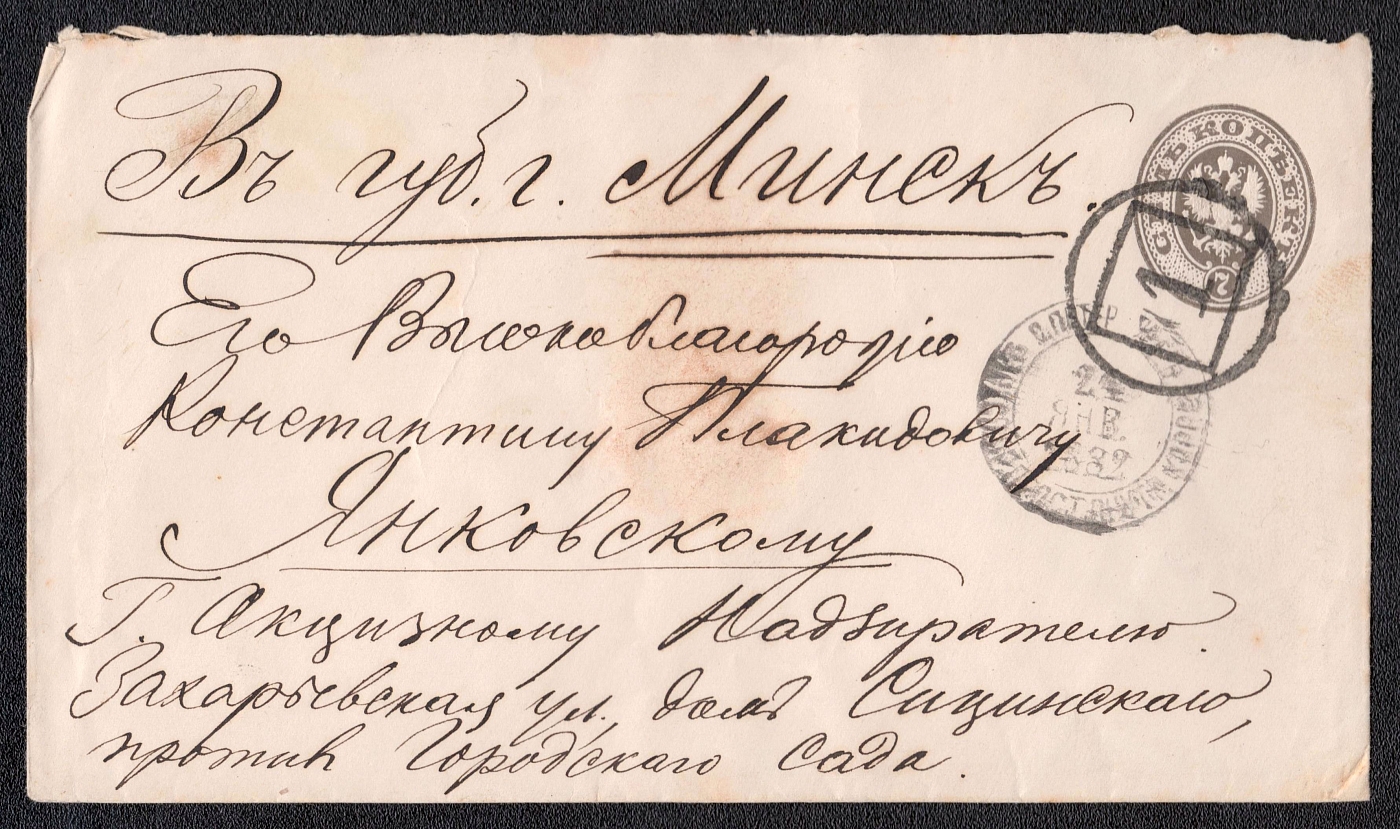 Въ губ. г. Минскъ.
Его Высокоблагородію
Константину Плакидовичу
Янковскому
Г. Акцизному Надзирателю.
Захарьевская ул., домъ Сицинскаго,
противъ Городскаго сада.
СЕМЬ КОПѢЕКЪ
7
1
ЯНВ.
1882